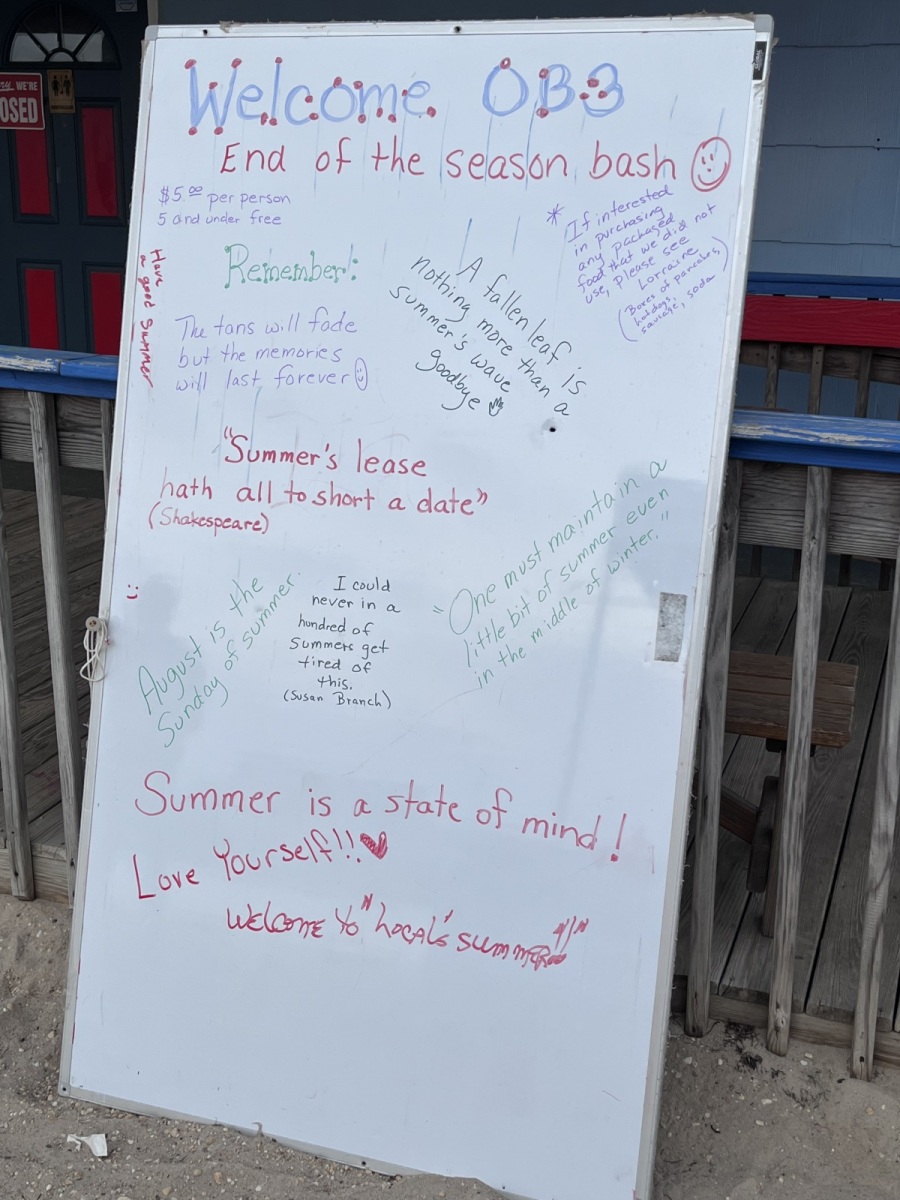 WE'RE
Welcome OB3
End of the season bash
$5.00 per person
5 and under free
* If interested
in purchasing
any packaged
food that we did not
use, please see
Lorraine
(Boxes of pancakes,
hotdogs,
sausage, soda)
Have
a good Summer
Remember!:
The tans will fade
but the memories
will last forever
A fallen leaf is
nothing more than a
summer's wave
goodbye
"Summer's lease
hath all to short a date"
(Shakespeare)
:)
August is the
Sunday of summer.
I could
never in a
hundred of
Summers get
tired of
this.
(Susan Branch)
"One must maintain a
little bit of summer even
in the middle of winter."
Summer is a state of mind!
Love Yourself!!
WELCOME to "LOCAL'S SUMMER"